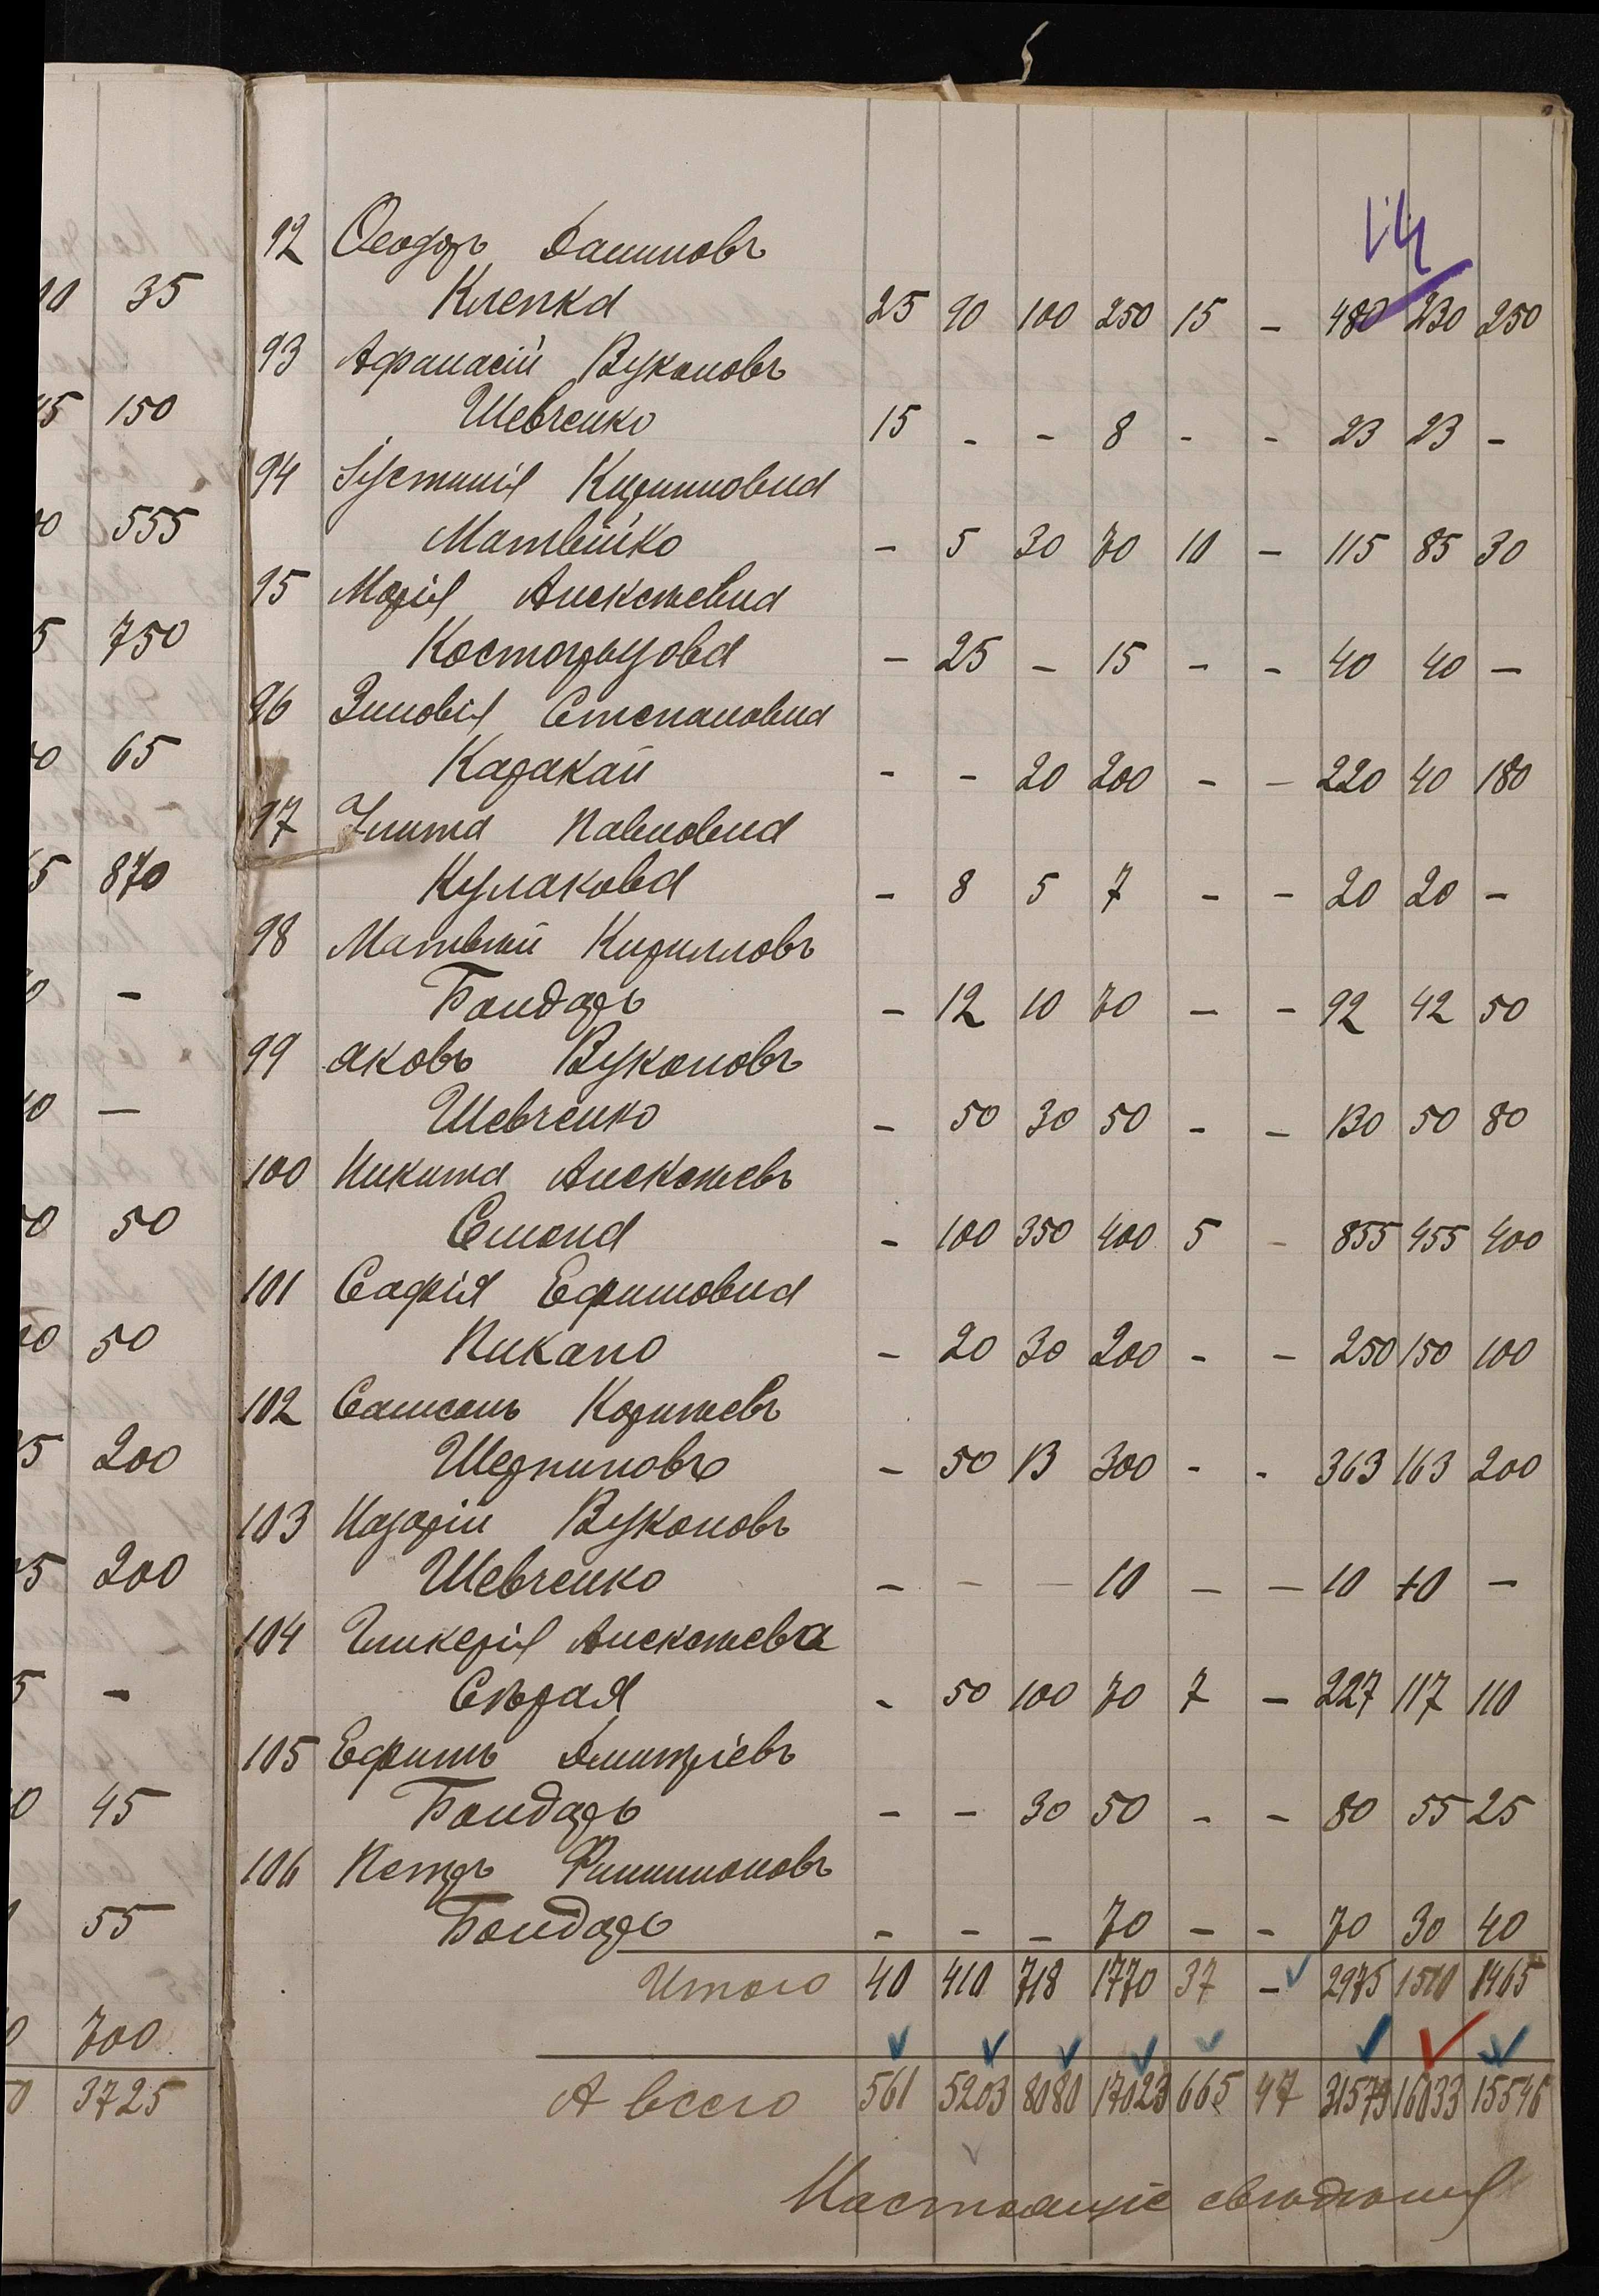 14
10 35
92 Ѳеодоръ Даниловъ
Клепка 25 90 100 250 15 - 480 230 250
45 150
93 Афанасій Вуколовъ
Шевченко 15 - - 8 - - 23 23 -
555
94 Іустинія Кирилловна
Матвійко - 5 30 70 10 - 115 85 30
5 750
95 Марія Алексѣевна
Косторызова - 25 - 15 - - 40 40 -
65
96 Зиновія Степановна
Каракай - - 20 200 - - 220 40 180
5 870
97 Улита Павловна
Кулакова - 8 5 7 - - 20 20 -
0 -
98 Матвѣй Кирилловъ
Бондарь - 12 10 70 - - 92 42 50
0 -
99 аковъ Вуколовъ
Шевченко - 50 30 50 - - 130 50 80
0 50
100 Никита Алексѣевъ
- 100 350 400 5 - 855 455 400
0 50
101 Софія Ефимовна
Никано - 20 30 200 - - 250 150 100
5 200
102 Самсонъ Корнѣевъ
- 50 13 300 - - 363 163 200
5 200
103 Назарій Вуколовъ
Шевченко - - - 10 - - 10 10 -
5 -
104 Гликерія Алексѣева
Сѣрая - 50 100 70 7 - 227 117 110
0 45
105 Ефимъ Дмитріевъ
Бондарь - - 30 50 - - 80 55 25
55
106 Петръ Филимоновъ
Бондарь - - - 70 - - 70 30 40
0 700
Итого 40 410 718 1770 37 - 2975 1510 1465
0 3725
А всего 561 5203 8080 17023 665 47 31579 16033 15546
Настоящіе свѣдѣнія